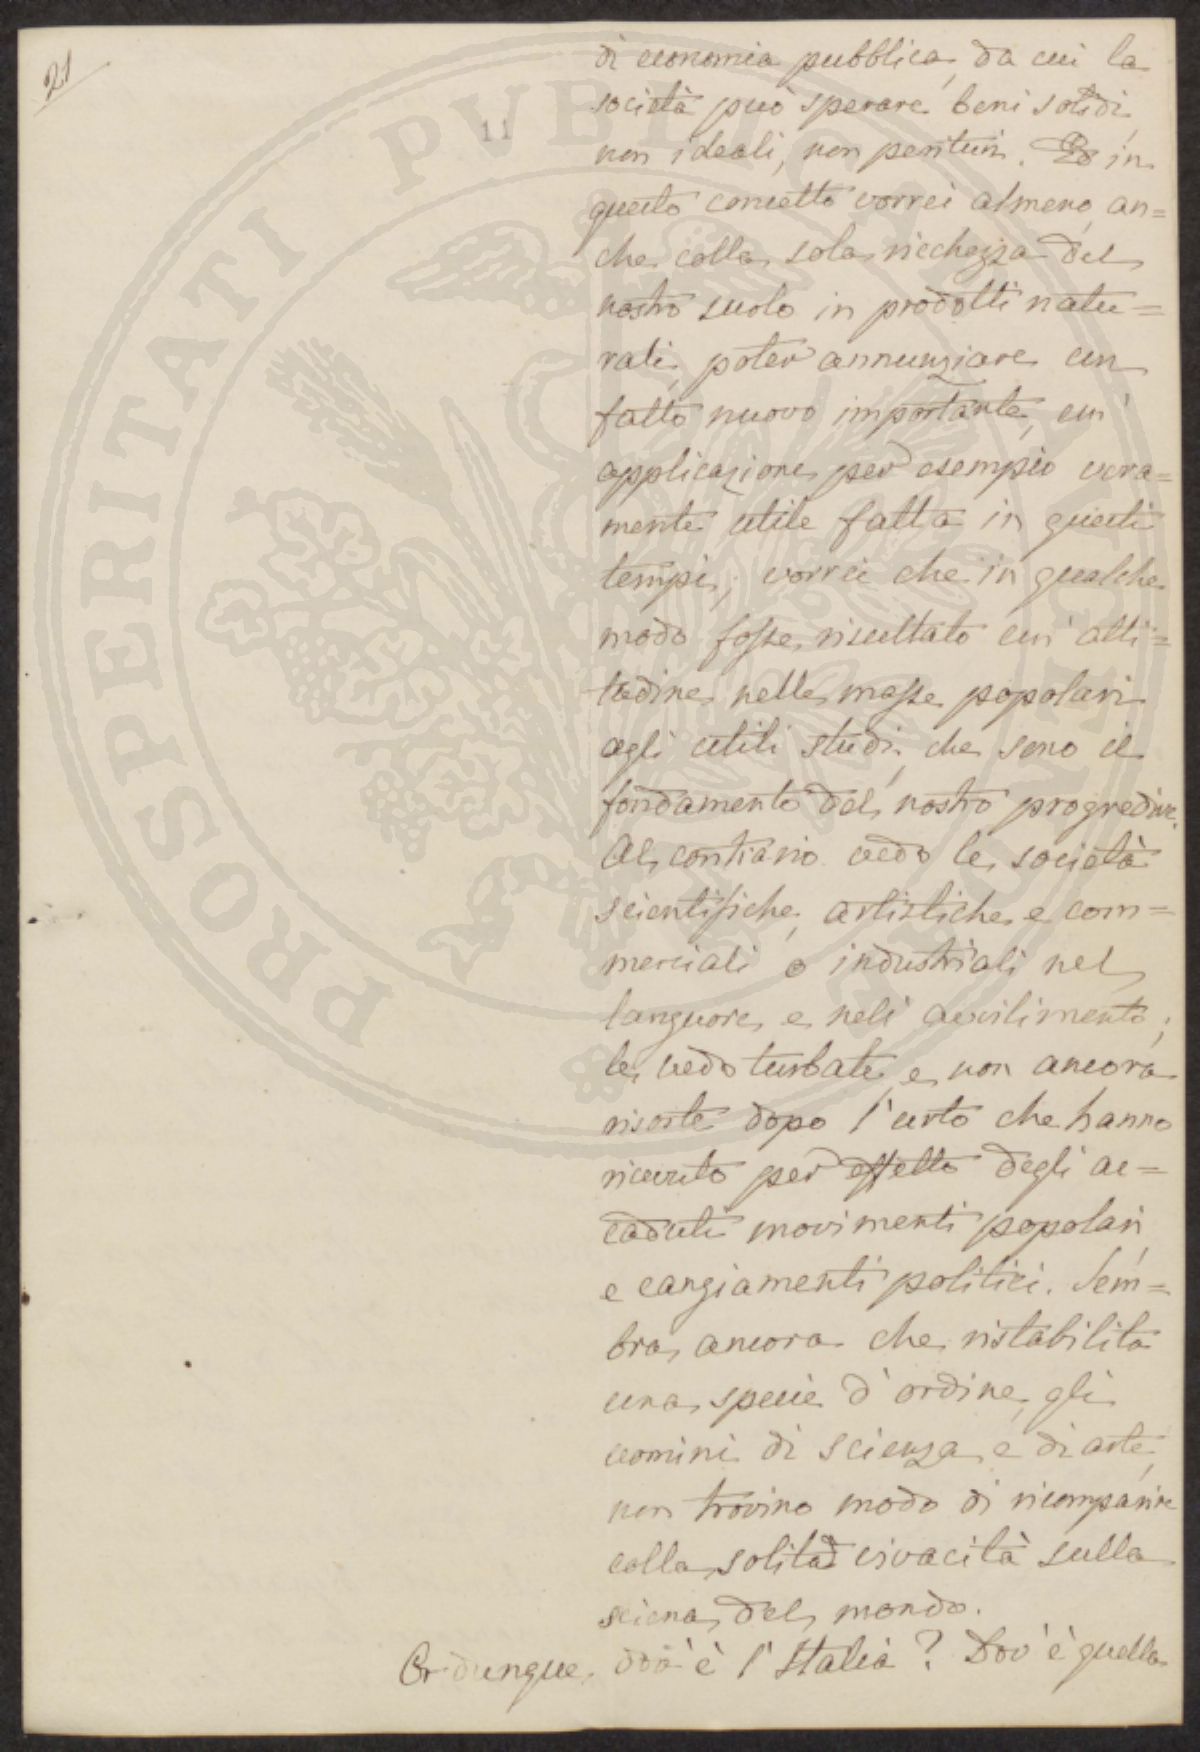 21
11
di economia pubblica, da cui la
società può sperare beni solidi,
non ideali, non perituri. Ed in
questo concetto vorrei almeno, an=
che colla sola ricchezza del
nostro suolo in prodotti natu=
rali, poter annunziare un
fatto nuovo importante, un'
applicazione per esempio vera=
mente utile fatta in questi
tempi; vorrei che in qualche
modo fosse risultato un' atti=
tudine nelle masse popolari
agli utili studi, che sono il
fondamento del nostro progredire.
Al contrario vedo le società
scientifiche, artistiche e com=
merciali o industriali nel
languore e nell' avvilimento;
le vedo turbate e non ancora
risorte dopo l'urto che hanno
ricevuto per effetto degli ac=
caduti movimenti popolari,
e cangiamenti politici. Sem=
bra ancora che ristabilita
una specie d'ordine, gli
uomini di scienza e di arte,
non trovino modo di ricomparire
colla solita vivacità sulla
sciena del mondo.
Or dunque, dov'è l'Italia? Dov'è quella
PROSPERITATI PVBLICAE